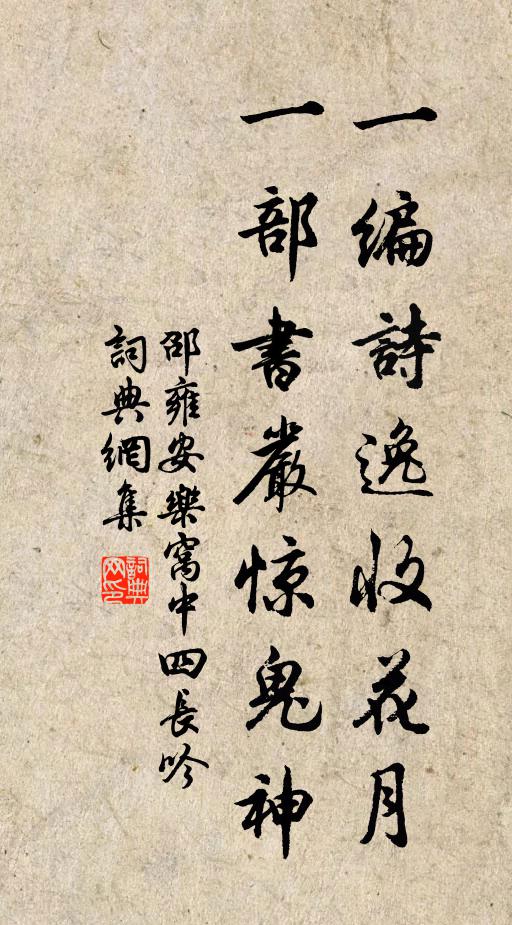 一编詩逸收花月
一部書嚴惊鬼神
邵雍安樂窩中四長吟
詞典網集
詞典
网印